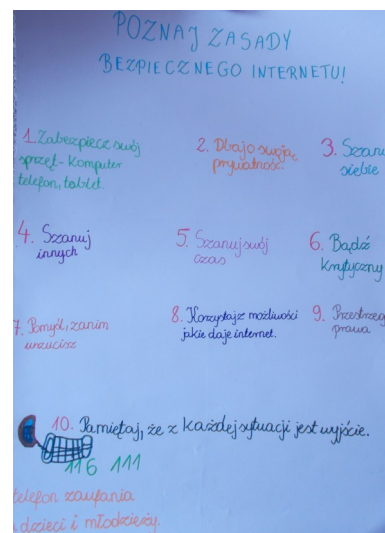 POZNAJ ZASADY
BEZPIECZNEGO INTERNETU!
1. Zabezpiecz swój
sprzęt - komputer
telefon, tablet.
2. Dbaj o swoją
prywatność.
3. Szanu
siebie
4. Szanuj
innych
5. Szanuj swój
czas
6. Bądź
krytyczny
7. Pomyśl, zanim
wrzucisz
8. Korzystaj z możliwości
jakie daje internet.
9. Przestrzeg
prawa
10. Pamiętaj, że z każdej sytuacji jest wyjście.
116 111
telefon zaufania
dzieci i młodzieży.